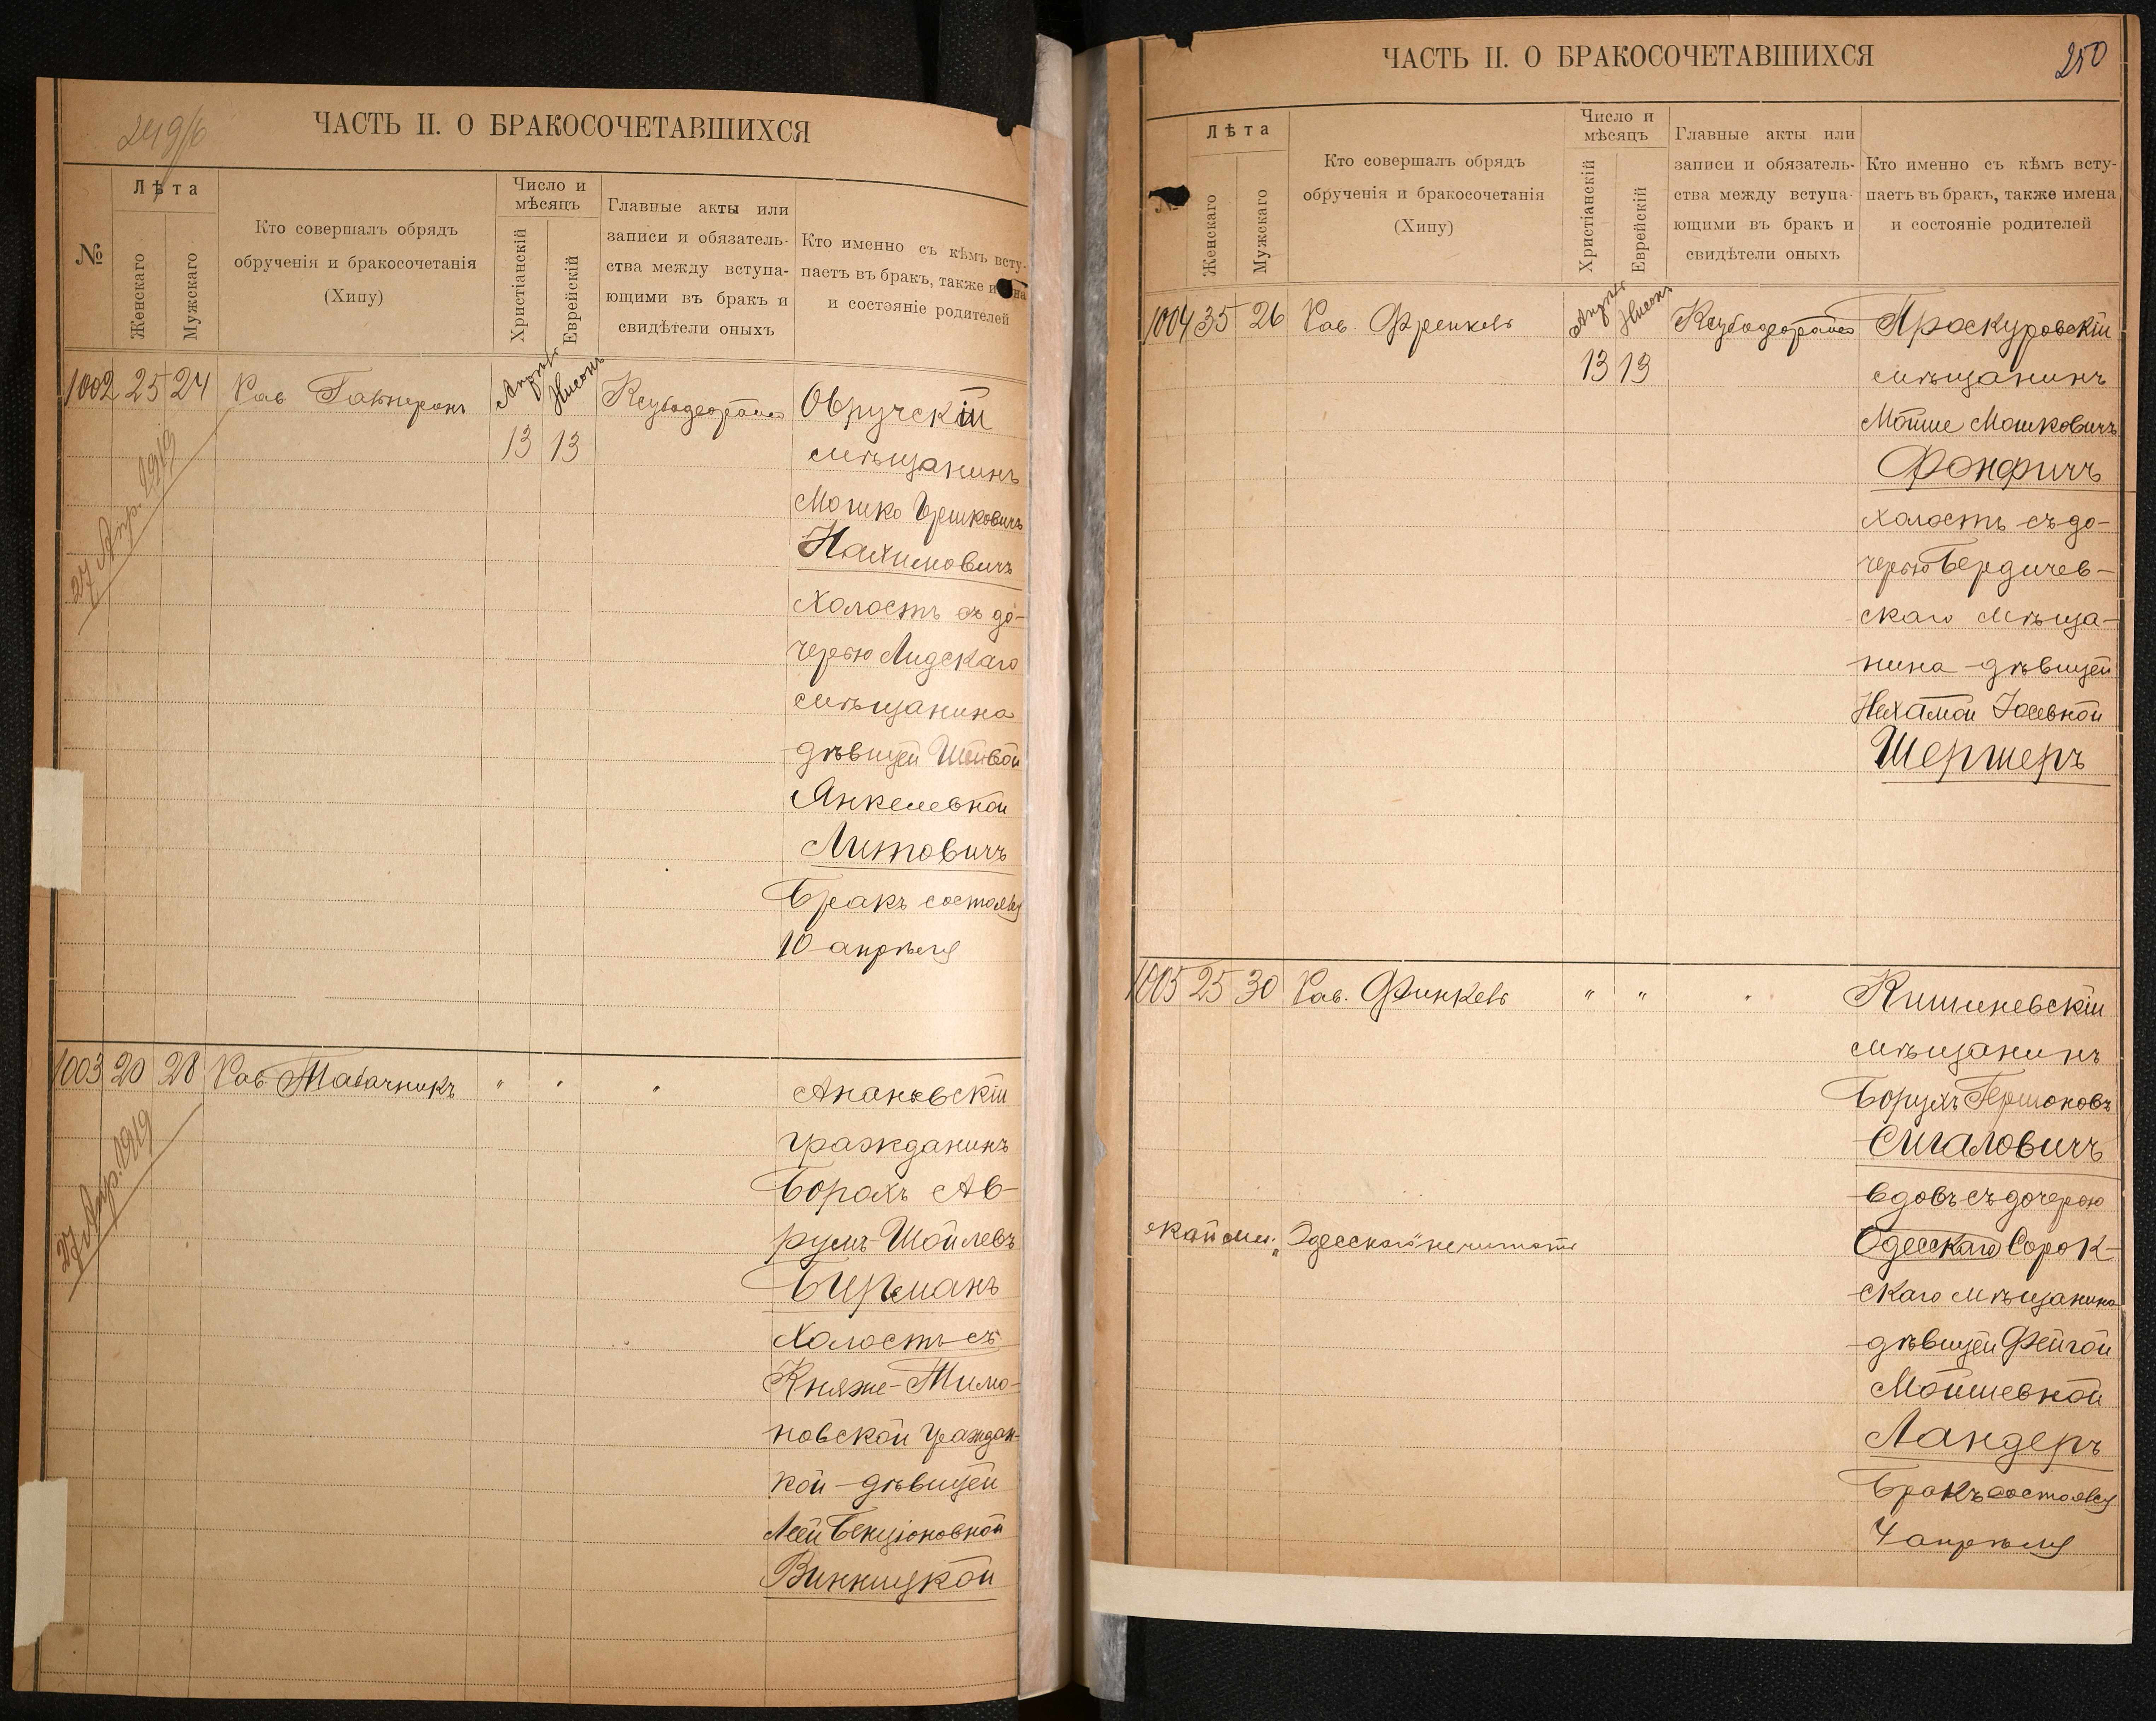 249/б
ЧАСТЬ II. О БРАКОСОЧЕТАВШИХСЯ
№
Лѣта
Женскаго
Мужскаго
Кто совершалъ обрядъ
обрученія и бракосочетанія
(Хипу)
Число и
мѣсяцъ
Христіанскій
Еврейскій
Главные акты или
записи и обязатель-
ства между вступа-
ющими въ бракъ и
свидѣтели оныхъ
Кто именно съ кѣмъ всту-
паетъ въ бракъ, также имена
и состояніе родителей
1002 25 24 Рав. Гальперинъ
Апрѣль Нисонъ
13 13
Овручскій
мѣщанинъ
Мошко Гершковичъ
Нахимовичъ
холостъ съ до-
черью Лидскаго
мѣщанина
дѣвицей
Янкелевной
Литовичъ
Бракъ состоялся
10 апрѣля
27 Апр. 1919
1003 20 28 Рав. Табачникъ " " "
Ананьевскій
гражданинъ
Борахъ Ав-
румъ Шойлевъ
Бирманъ
холостъ съ
Княже-Тимо-
новской граждан-
кой дѣвицей
Леей Бенціоновной
Винницкой
27 Апр. 1919
ЧАСТЬ II. О БРАКОСОЧЕТАВШИХСЯ
250
№
Лѣта
Женскаго
Мужскаго
Кто совершалъ обрядъ
обрученія и бракосочетанія
(Хипу)
Число и
мѣсяцъ
Христіанскій
Еврейскій
Главные акты или
записи и обязатель-
ства между вступа-
ющими въ бракъ и
свидѣтели оныхъ
Кто именно съ кѣмъ всту-
паетъ въ бракъ, также имена
и состояніе родителей
1004 35 26 Рав. Френкель
Апрѣль Нисонъ
13 13
Проскуровскій
мѣщанинъ
Мойше Мошковичъ
Фонфичъ
холостъ съ до-
черью Бердичев-
скаго мѣща-
нина дѣвицей
Нехамой Іосевной
Шершеръ
1005 25 30 Рав. Финкель " " "
Кишиневскій
мѣщанинъ
Борухъ Гершоновъ
Сигаловичъ
вдовъ съ дочерью
Одесскаго Сорок-
скаго мѣщанина
дѣвицей Фейгой
Мойшевной
Ландеръ
Бракъ состоялся
4 апрѣля
„Одесскаго" не читать